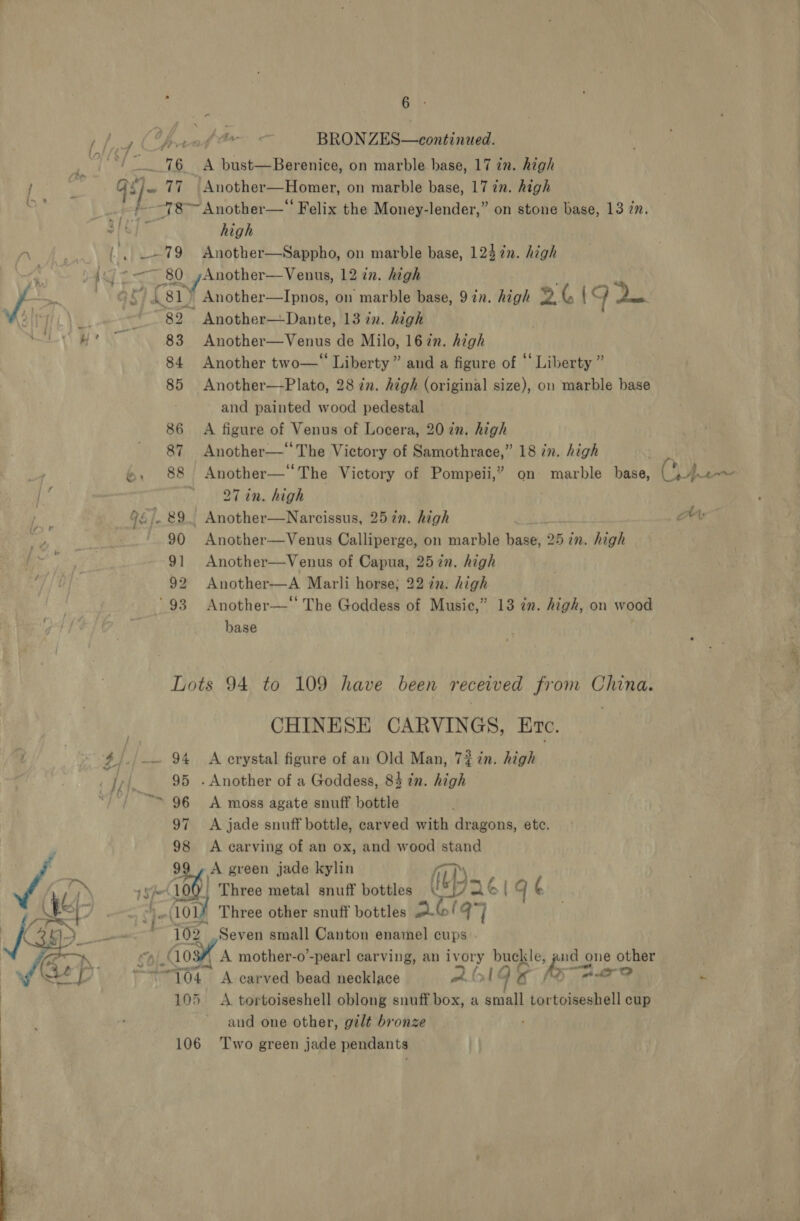 6
BRONZES—continued.
76 A bust—Berenice, on marble base, 17 in. high
77 Another—Homer, on marble base, 17 in. high
78 Another—“Felix the Money-lender,” on stone base, 13 in.
high
79 Another—Sappho, on marble base, 12½ in. high
80 Another—Venus, 12 in. high
81 Another—Ipnos, on marble base, 9 in. high 26192
82 Another—Dante, 13 in. high
83 Another—Venus de Milo, 16 in. high
84 Another two—“Liberty” and a figure of “Liberty”
85 Another—Plato, 28 in. high (original size), on marble base
and painted wood pedestal
86 A figure of Venus of Locera, 20 in. high
87 Another—“The Victory of Samothrace,” 18 in. high
88 Another—“The Victory of Pompeii,” on marble base,
27 in. high
89 Another—Narcissus, 25 in. high
90 Another—Venus Calliperge, on marble base, 25 in. high
91 Another—Venus of Capua, 25 in. high
92 Another—A Marli horse, 22 in. high
93 Another—“The Goddess of Music,” 13 in. high, on wood
base
Lots 94 to 109 have been received from China.
CHINESE CARVINGS, ETC.
94 A crystal figure of an Old Man, 7¾ in. high
95 Another of a Goddess, 8½ in. high
96 A moss agate snuff bottle
97 A jade snuff bottle, carved with dragons, etc.
98 A carving of an ox, and wood stand
99 A green jade kylin
100 Three metal snuff bottles 26196
101 Three other snuff bottles 26197
102 Seven small Canton enamel cups
103 A mother-o’-pearl carving, an ivory buckle, and one other
104 A carved bead necklace 26198
105 A tortoiseshell oblong snuff box, a small tortoiseshell cup
and one other, gilt bronze
106 Two green jade pendants